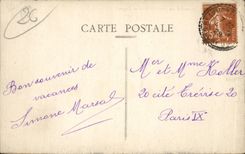 2€
CARTE POSTALE
Bon souvenir de
vacances
Simone Marsal
Mer et Mme Koller
20 cité Trévise 20
Paris IX